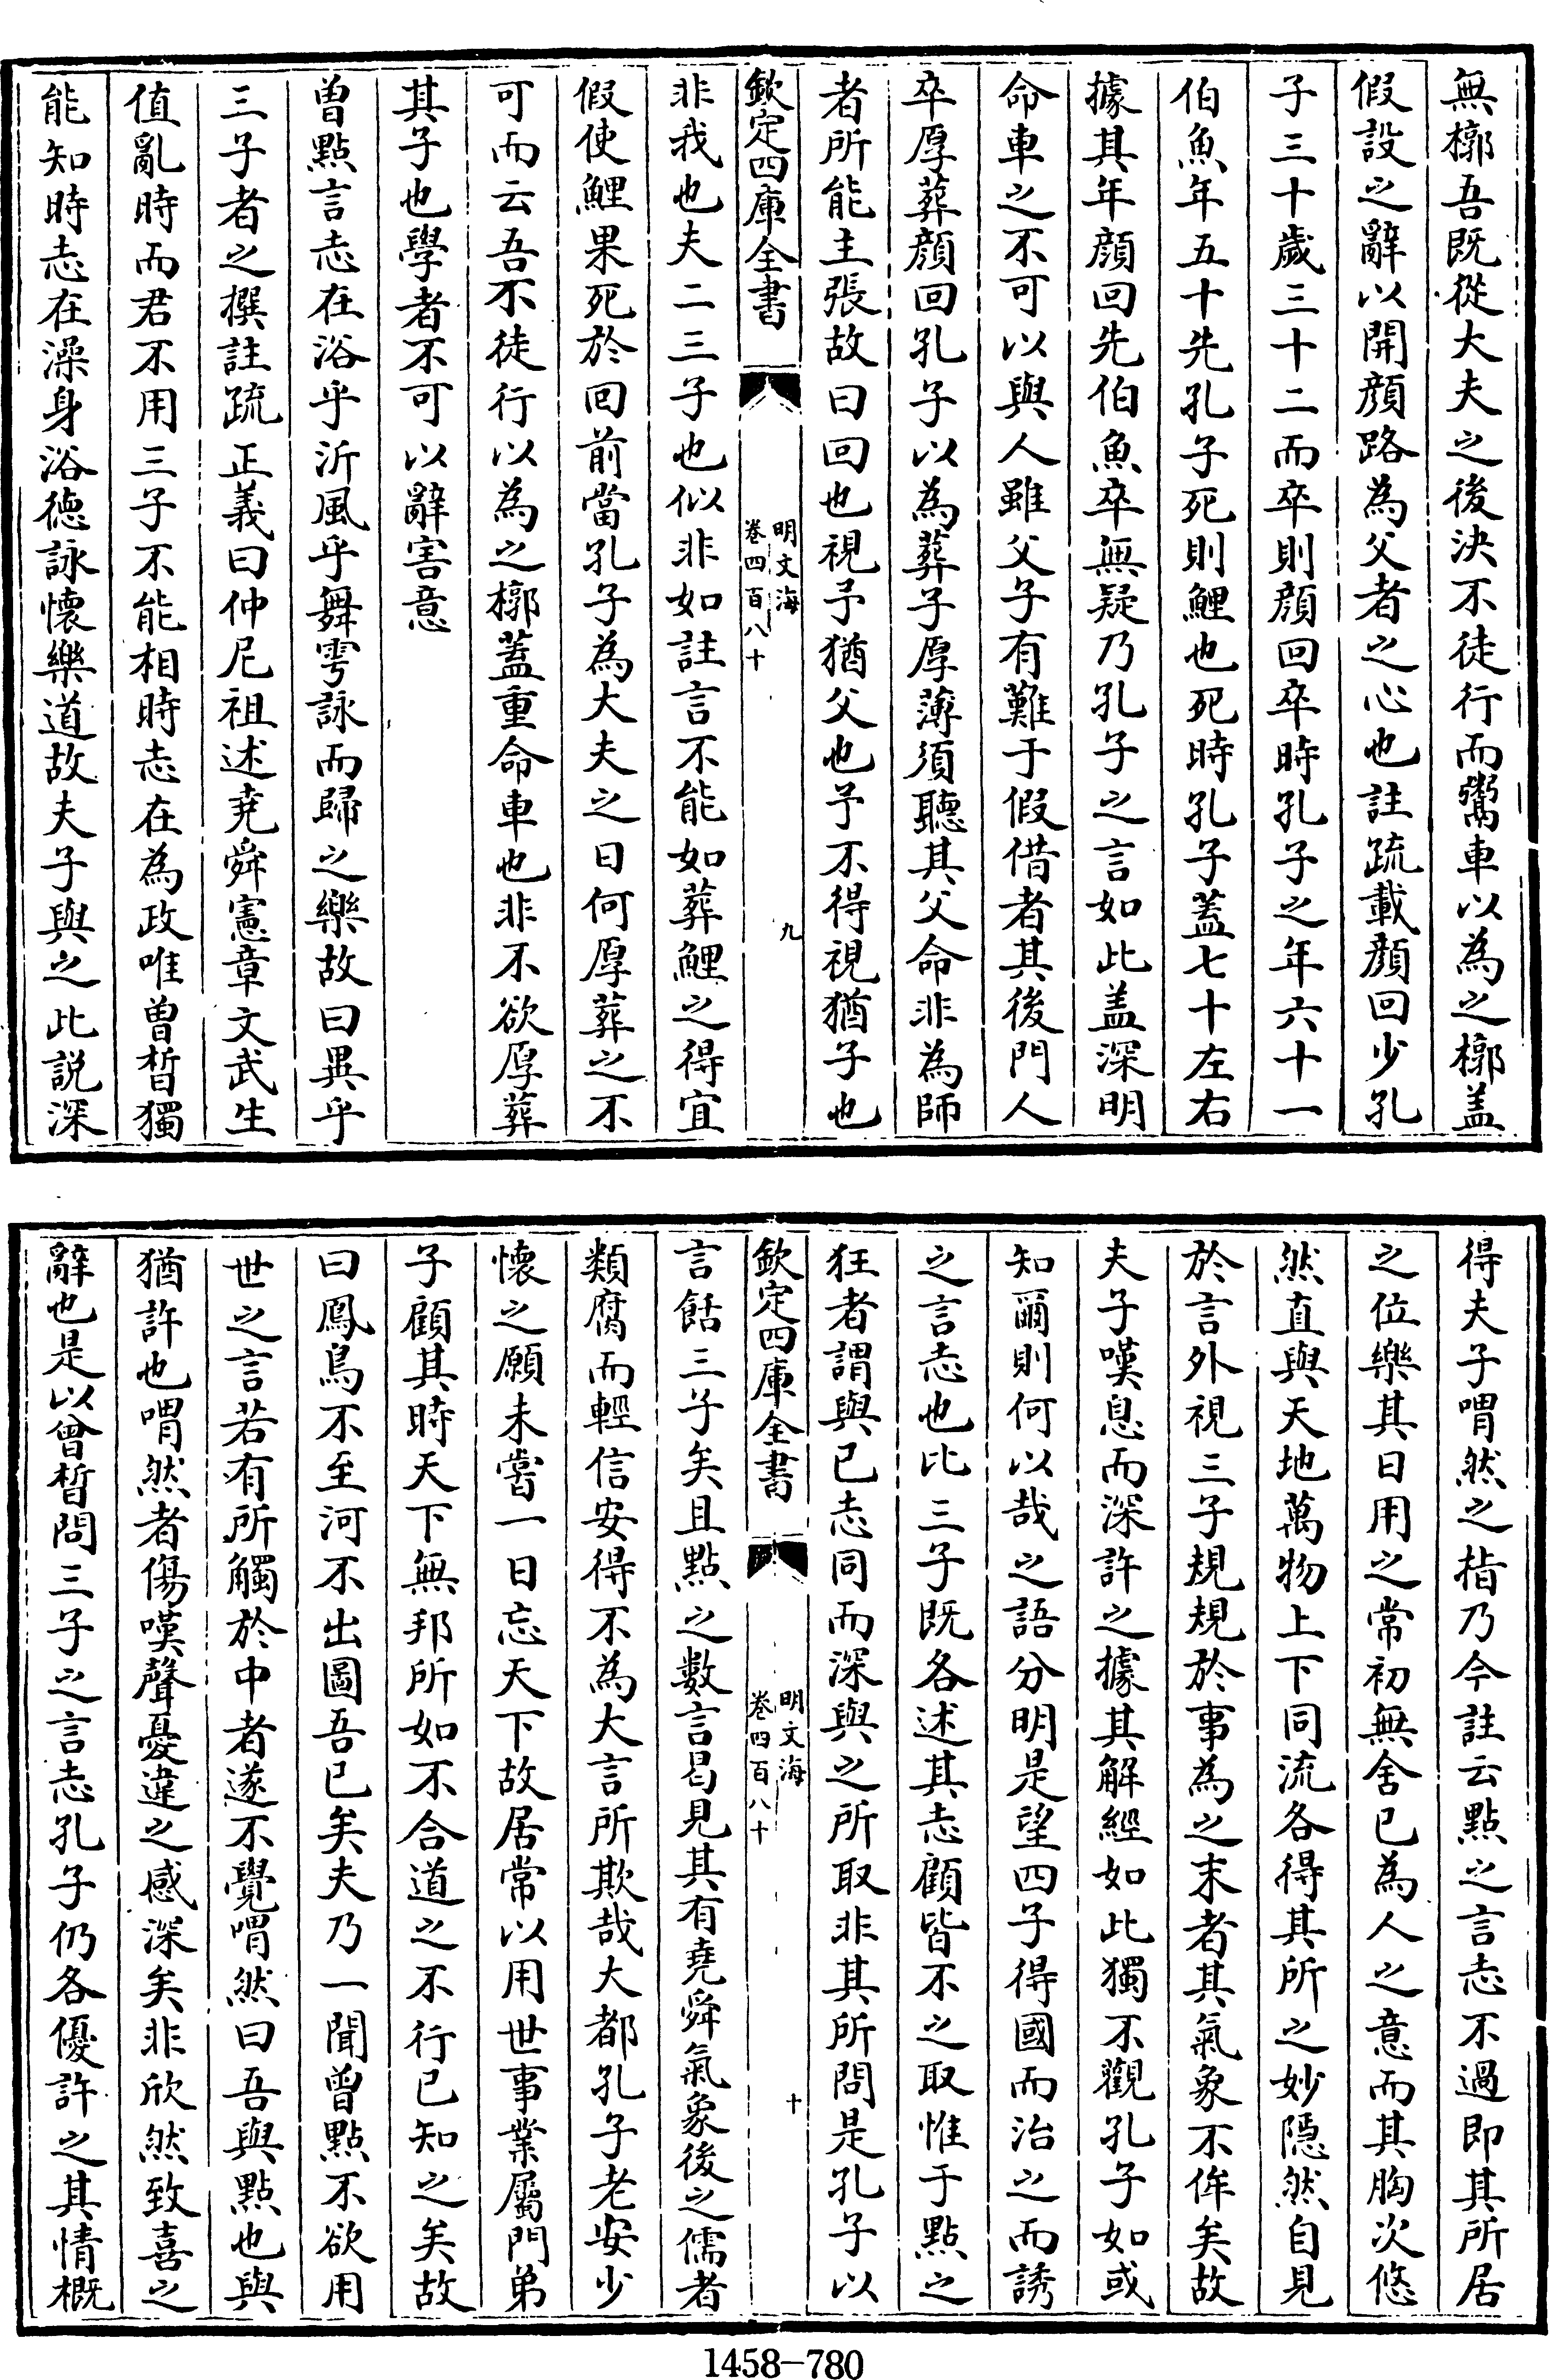 無槨吾既從大夫之後決不徒行而鬻車以為之槨盖
假設之辭以開顔路為父者之心也註疏載顔回少孔
子三十歲三十二而卒則顔回卒時孔子之年六十一
伯魚年五十先孔子死則鯉也死時孔子蓋七十左右
據其年顔回先伯魚卒無疑乃孔子之言如此盖深明
命車之不可以與人雖父子有難于假借者其後門人
卒厚葬顔回孔子以為葬子厚薄須聽其父命非為師
者所能主張故曰回也視予猶父也予不得視猶子也
欽定四庫全書
明文海
卷四百八十
九
非我也夫二三子也似非如註言不能如葬鯉之得宜
假使鯉果死於回前當孔子為大夫之日何厚葬之不
可而云吾不徒行以為之槨蓋重命車也非不欲厚葬
其子也學者不可以辭害意
曽點言志在浴乎沂風乎舞雩詠而歸之樂故曰異乎
三子者之撰註疏正義曰仲尼祖述堯舜憲章文武生
值亂時而君不用三子不能相時志在為政唯曽晳獨
能知時志在澡身浴徳詠懐樂道故夫子與之此説深
得夫子喟然之指乃今註云點之言志不過即其所居
之位樂其日用之常初無舍已為人之意而其胸次悠
然直與天地萬物上下同流各得其所之妙隠然自見
於言外視三子規規於事為之末者其氣象不侔矣故
夫子嘆息而深許之據其解經如此獨不觀孔子如或
知爾則何以哉之語分明是望四子得國而治之而誘
之言志也比三子既各述其志顧皆不之取惟于點之
狂者謂與已志同而深與之所取非其所問是孔子以
欽定四庫全書
明文海
卷四百八十
十
言餂三子矣且點之數言曷見其有堯舜氣象後之儒者
類腐而輕信安得不為大言所欺哉大都孔子老安少
懐之願未嘗一日忘天下故居常以用世事業屬門弟
子顧其時天下無邦所如不合道之不行已知之矣故
曰鳳鳥不至河不出圖吾已矣夫乃一聞曽點不欲用
世之言若有所觸於中者遂不覺喟然曰吾與點也與
猶許也喟然者傷嘆聲憂違之感深矣非欣然致喜之
辭也是以曾晳問三子之言志孔子仍各優許之其情概
1458-780